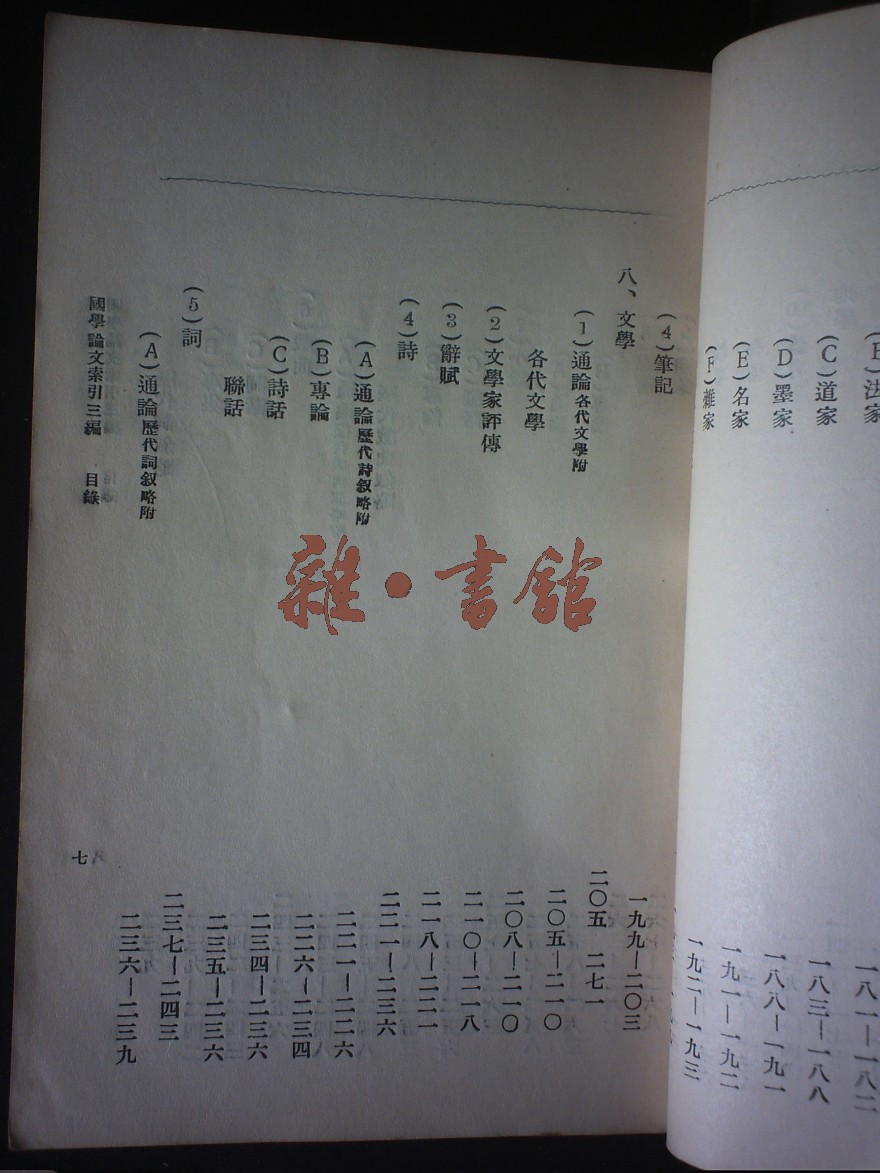 法家 一八一—一八二
(C)道家 一八三—一八八
(D)墨家 一八八—一九一
(E)名家 一九一—一九二
(F)雜家 一九二—一九三
(4)筆記 一九九—二〇三
八、文學 二〇五 二七一
(1)通論各代文學附 二〇五—二一〇
各代文學 二〇八—二一〇
(2)文學家評傳 二一〇—二一八
(3)辭賦 二一八—二二一
(4)詩 二二一—二三六
(A)通論歷代詩叙略附 二二一—二二六
(B)專論 二二六—二三四
(C)詩話 二三四—二三六
聯話 二三五—二三六
(5)詞 二三七—二四三
(A)通論歷代詞叙略附 二三六—二三九
國學論文索引三編 目錄 七
雜·書館